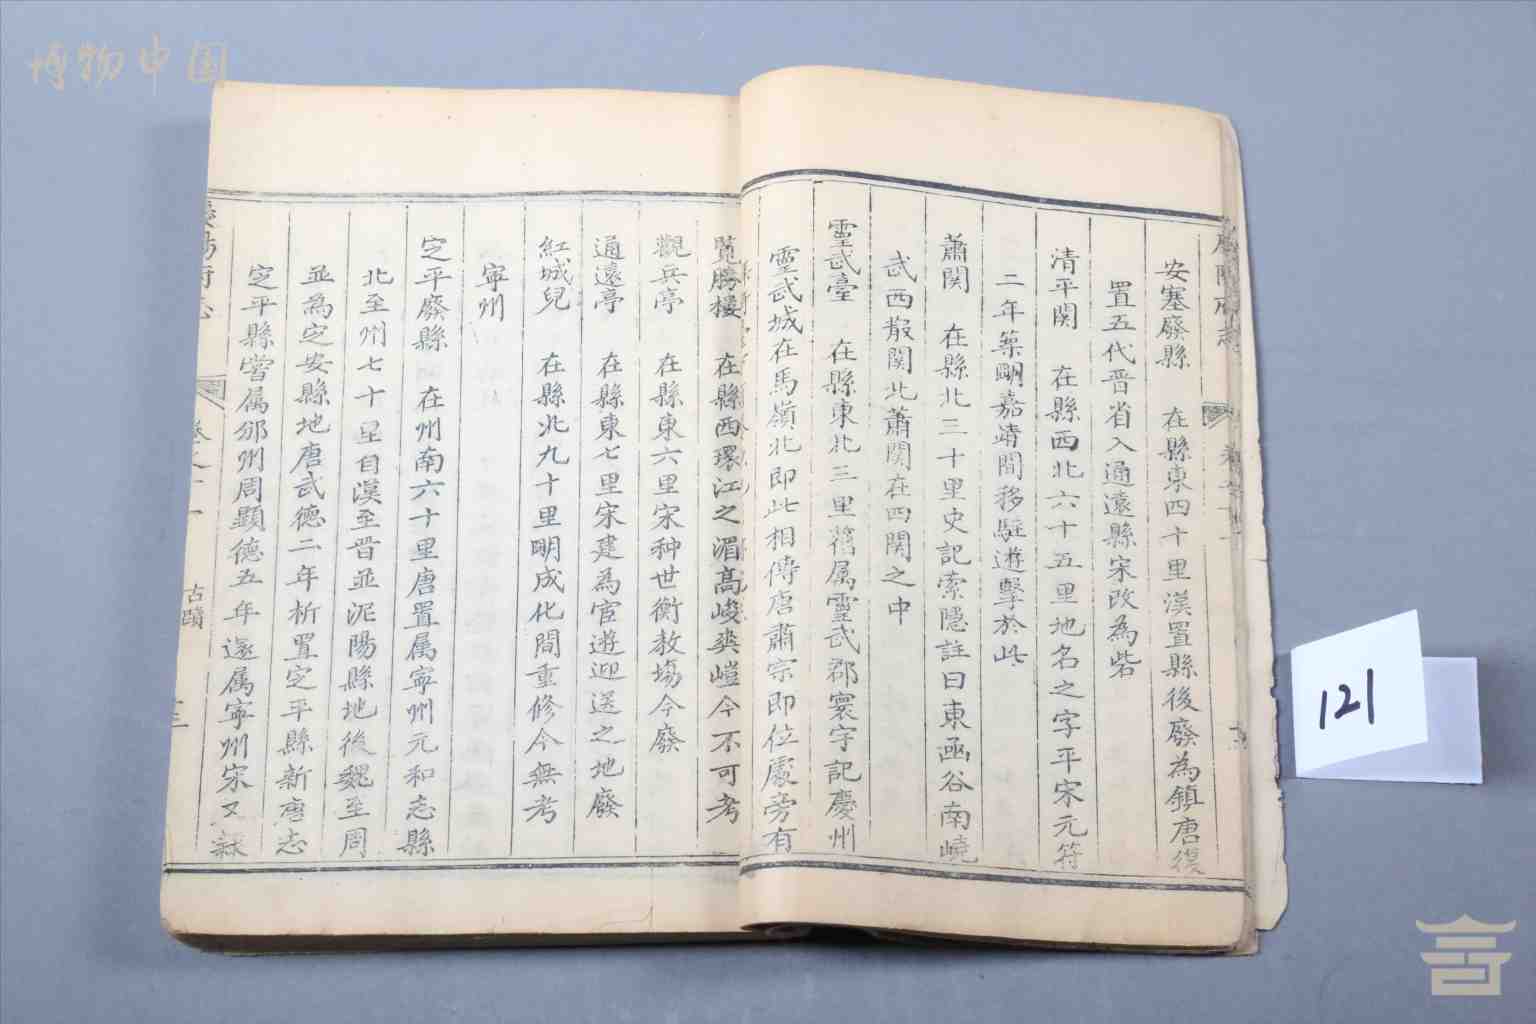 博物中国
慶陽府志
安塞廢縣 在縣東四十里漢置縣後廢為鎮唐復
置五代晋省入通遠縣宋改為砦
清平関 在縣西北六十五里地名之字平宋元符
二年築明嘉靖間移駐遊擊於此
蕭関 在縣北三十里史記索隱註曰東函谷南嶢
武西散関北蕭関在四関之中
靈武臺 在縣東北三里舊属靈武郡寰宇記慶州
靈武城在馬嶺北即此相傳唐肅宗即位處旁有
覽勝樓 在縣西環江之湄高峻爽嵦今不可考
觀兵亭 在縣東六里宋种世衡教塲今廢
通遠亭 在縣東七里宋建為官遊迎送之地廢
紅城兒 在縣北九十里明成化間重修今無考
寧州
定平廢縣 在州南六十里唐置属寧州元和志縣
北至州七十里自漢至晋並泥陽縣地後魏至周
並為定安縣地唐武德二年析置定平縣新唐志
定平縣嘗属邠州周顯德五年遂属寧州宋又隸
慶陽府志
卷之十一
古蹟
十三
121